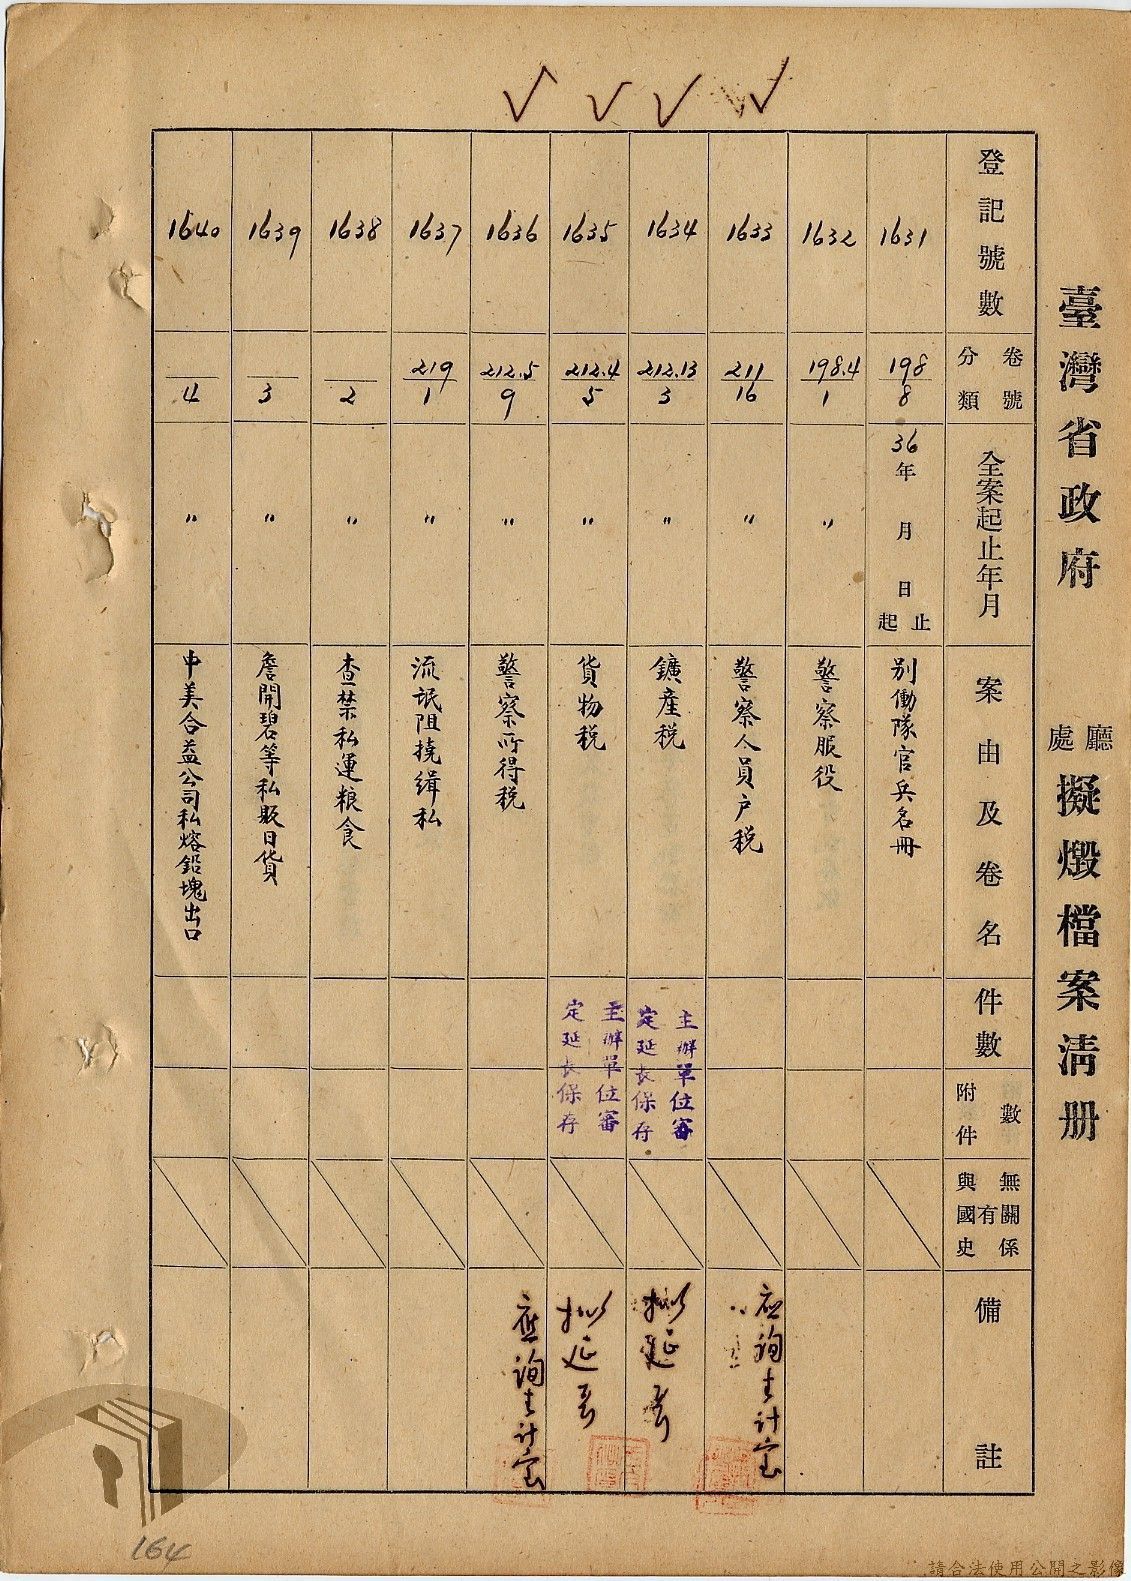 臺灣省政府 廳處 擬燬檔案清册
登記號數
卷號
分類
全案起止年月
案由及卷名
件數
附件數
與國史有無關係
備註
1631
198
8
36年 月 日起止
別働隊官兵名冊
1632
198.4
1
〃
警察服役
1633
211
16
〃
警察人員户稅
應詢主計室
1634
212.13
3
〃
鑛產稅
主辦單位審
定延長保存
拟延長
1635
212.4
5
〃
貨物稅
主辦單位審
定延長保存
拟延長
1636
212.5
9
〃
警察所得稅
應詢主計室
1637
219
1
〃
流氓阻撓緝私
1638
2
〃
查禁私運粮食
1639
3
〃
詹開碧等私販日貨
1640
4
〃
中美合益公司私熔鉛塊出口
164
請合法使用公開之影像